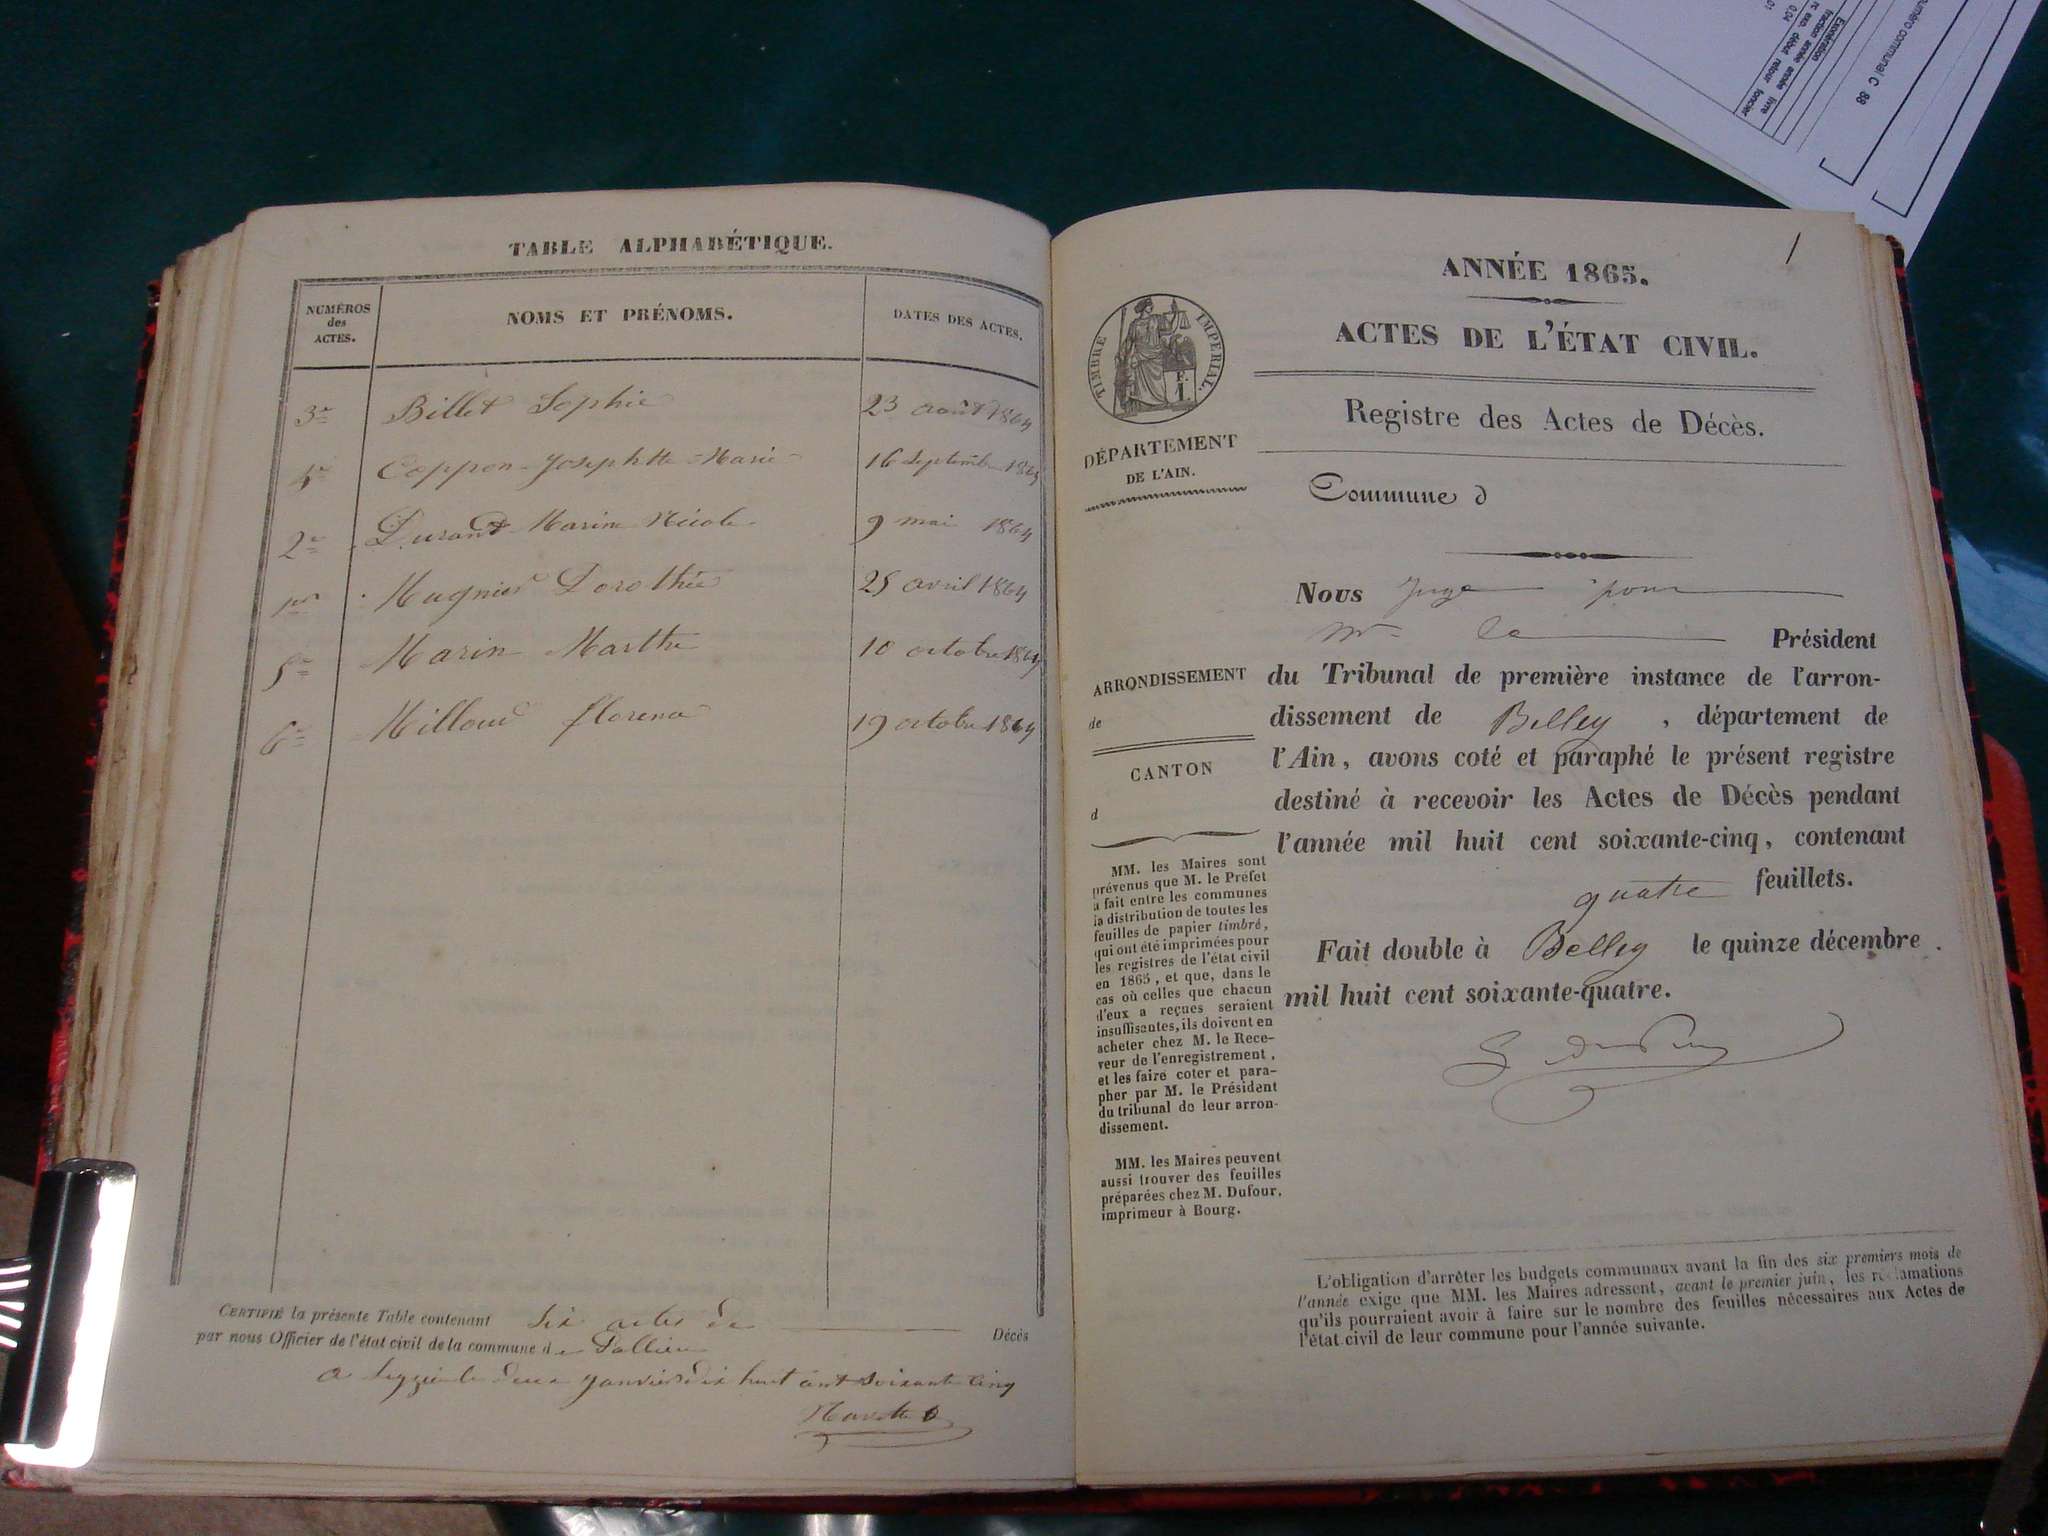 TABLE ALPHABÉTIQUE.
NUMÉROS
des
ACTES.
NOMS ET PRÉNOMS.
DATES DES ACTES.
3e Billet Sophie 23 août 1864
4e Coppon Josephtte Marie 16 Septembre 1864
2e Durand Marin 9 mai 1864
1er Mugnier Dorothée 25 avril 1864
5e Marin Marthe 10 octobre 1864
6e Milloud florence 19 octobre 1864
CERTIFIÉ la présente Table contenant Six actes de Décès
par nous Officier de l'état civil de la commune de
a le deux janvier dix huit cent soixante cinq
1
ANNÉE 1865.
ACTES DE L'ÉTAT CIVIL.
Registre des Actes de Décès.
TIMBRE IMPÉRIAL.
F.
1.
DÉPARTEMENT
DE L'AIN.
Commune d
Nous Juge pour
Mr le Président
du Tribunal de première instance de l'arron-
dissement de Belley, département de
l'Ain, avons coté et paraphé le présent registre
destiné à recevoir les Actes de Décès pendant
l'année mil huit cent soixante-cinq, contenant
quatre feuillets.
Fait double à Belley le quinze décembre
mil huit cent soixante-quatre.
ARRONDISSEMENT
de
CANTON
d
MM. les Maires sont
prévenus que M. le Préfet
a fait entre les communes
la distribution de toutes les
feuilles de papier timbré,
qui ont été imprimées pour
les registres de l'état civil
en 1865, et que, dans le
cas où celles que chacun
d'eux a reçues seraient
insuffisantes, ils doivent en
acheter chez M. le Rece-
veur de l'enregistrement,
et les faire coter et para-
pher par M. le Président
du tribunal de leur arron-
dissement.
MM. les Maires peuvent
aussi trouver des feuilles
préparées chez M. Dufour,
imprimeur à Bourg.
L'obligation d'arrêter les budgets communaux avant la fin des six premiers mois de
l'année exige que MM. les Maires adressent, avant le premier juin, les réclamations
qu'ils pourraient avoir à faire sur le nombre des feuilles nécessaires aux Actes de
l'état civil de leur commune pour l'année suivante.
numéro communal C 88
Exonération
fraction année année livre
rc exo. début retour foncier
0,04
01